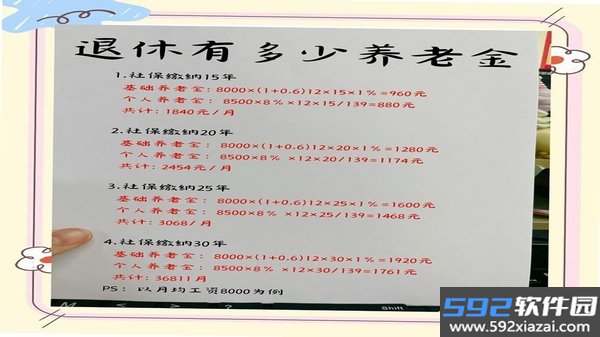 退休有多少养老金
1.社保缴纳15年
基础养老金: 8000×(1+0.6)12×15×1%=960元
个人养老金: 8500×8% ×12×15/139=880元
共计: 1840元/月
2.社保缴纳20年
基础养老金: 8000×(1+0.6)12×20×1%=1280元
个人养老金: 8500×8% ×12×20/139=1174元
共计: 2454元/月
3.社保缴纳25年
基础养老金: 8000×(1+0.6)12×25×1%=1600元
个人养老金: 8500×8% ×12×25/139=1468元
共计: 3068/月
4.社保缴纳30年
基础养老金: 8000×(1+0.6)12×30×1%=1920元
个人养老金: 8500×8% ×12×30/139=1761元
共计: 36811/月
PS: 以月均工资8000为例
M < > ? Shift
592软件园
www.592xiazai.com